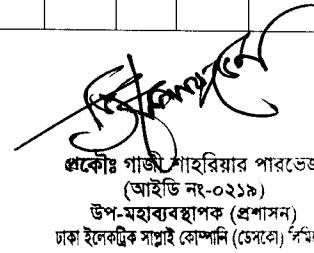 প্রকৌঃ গাজী শাহরিয়ার পারভেজ
(আইডি নং-০২১৯)
উপ-মহাব্যবস্থাপক (প্রশাসন)
ঢাকা ইলেকট্রিক সাপ্লাই কোম্পানি (ডেসকো)